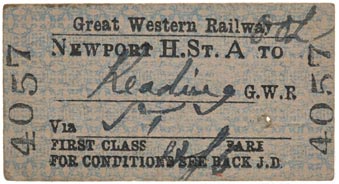 Great Western Railway
NEWPORT H.ST. A TO
Reading G.W.R
VIA
FIRST CLASS FARE
FOR CONDITIONS SEE BACK J.D.
4057
4057